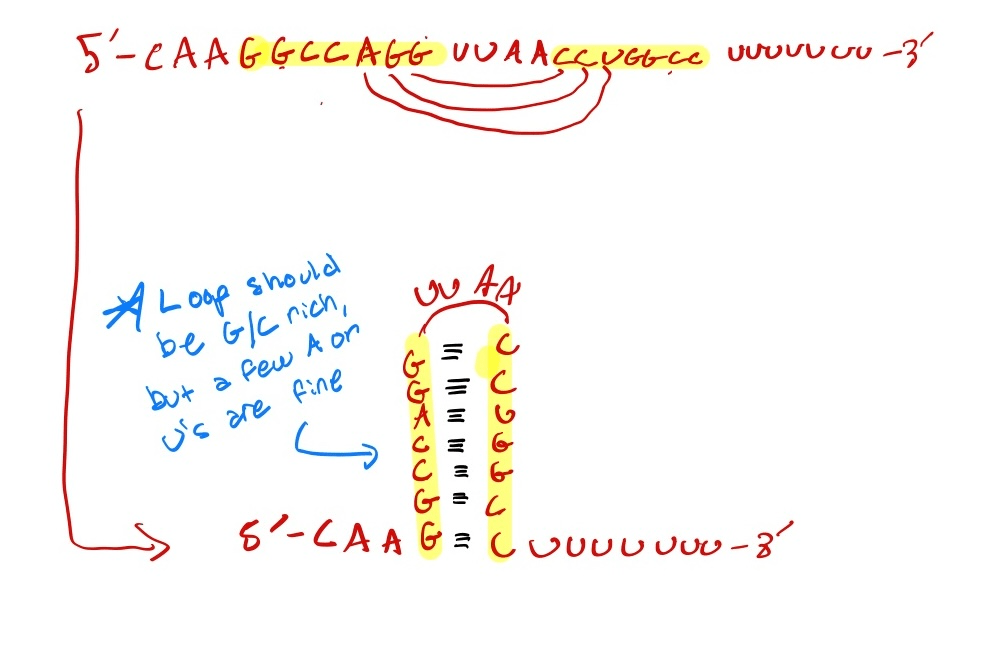 5'-CAAGGCCAGG UUAACCUGGCC UUUUUUU-3'
UU AA
* Loop should
be G/C rich,
but a few A or
U's are fine
G ≡ C
G ≡ C
A ≡ U
C ≡ G
C ≡ G
G ≡ C
5'-CAA G ≡ C UUUUUUU-3'